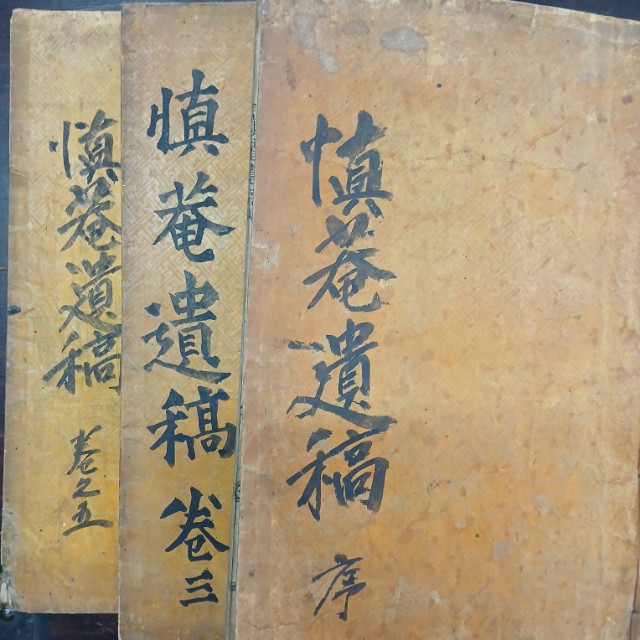 慎菴遺稿 序
慎菴遺稿 卷三
慎菴遺稿 卷之五